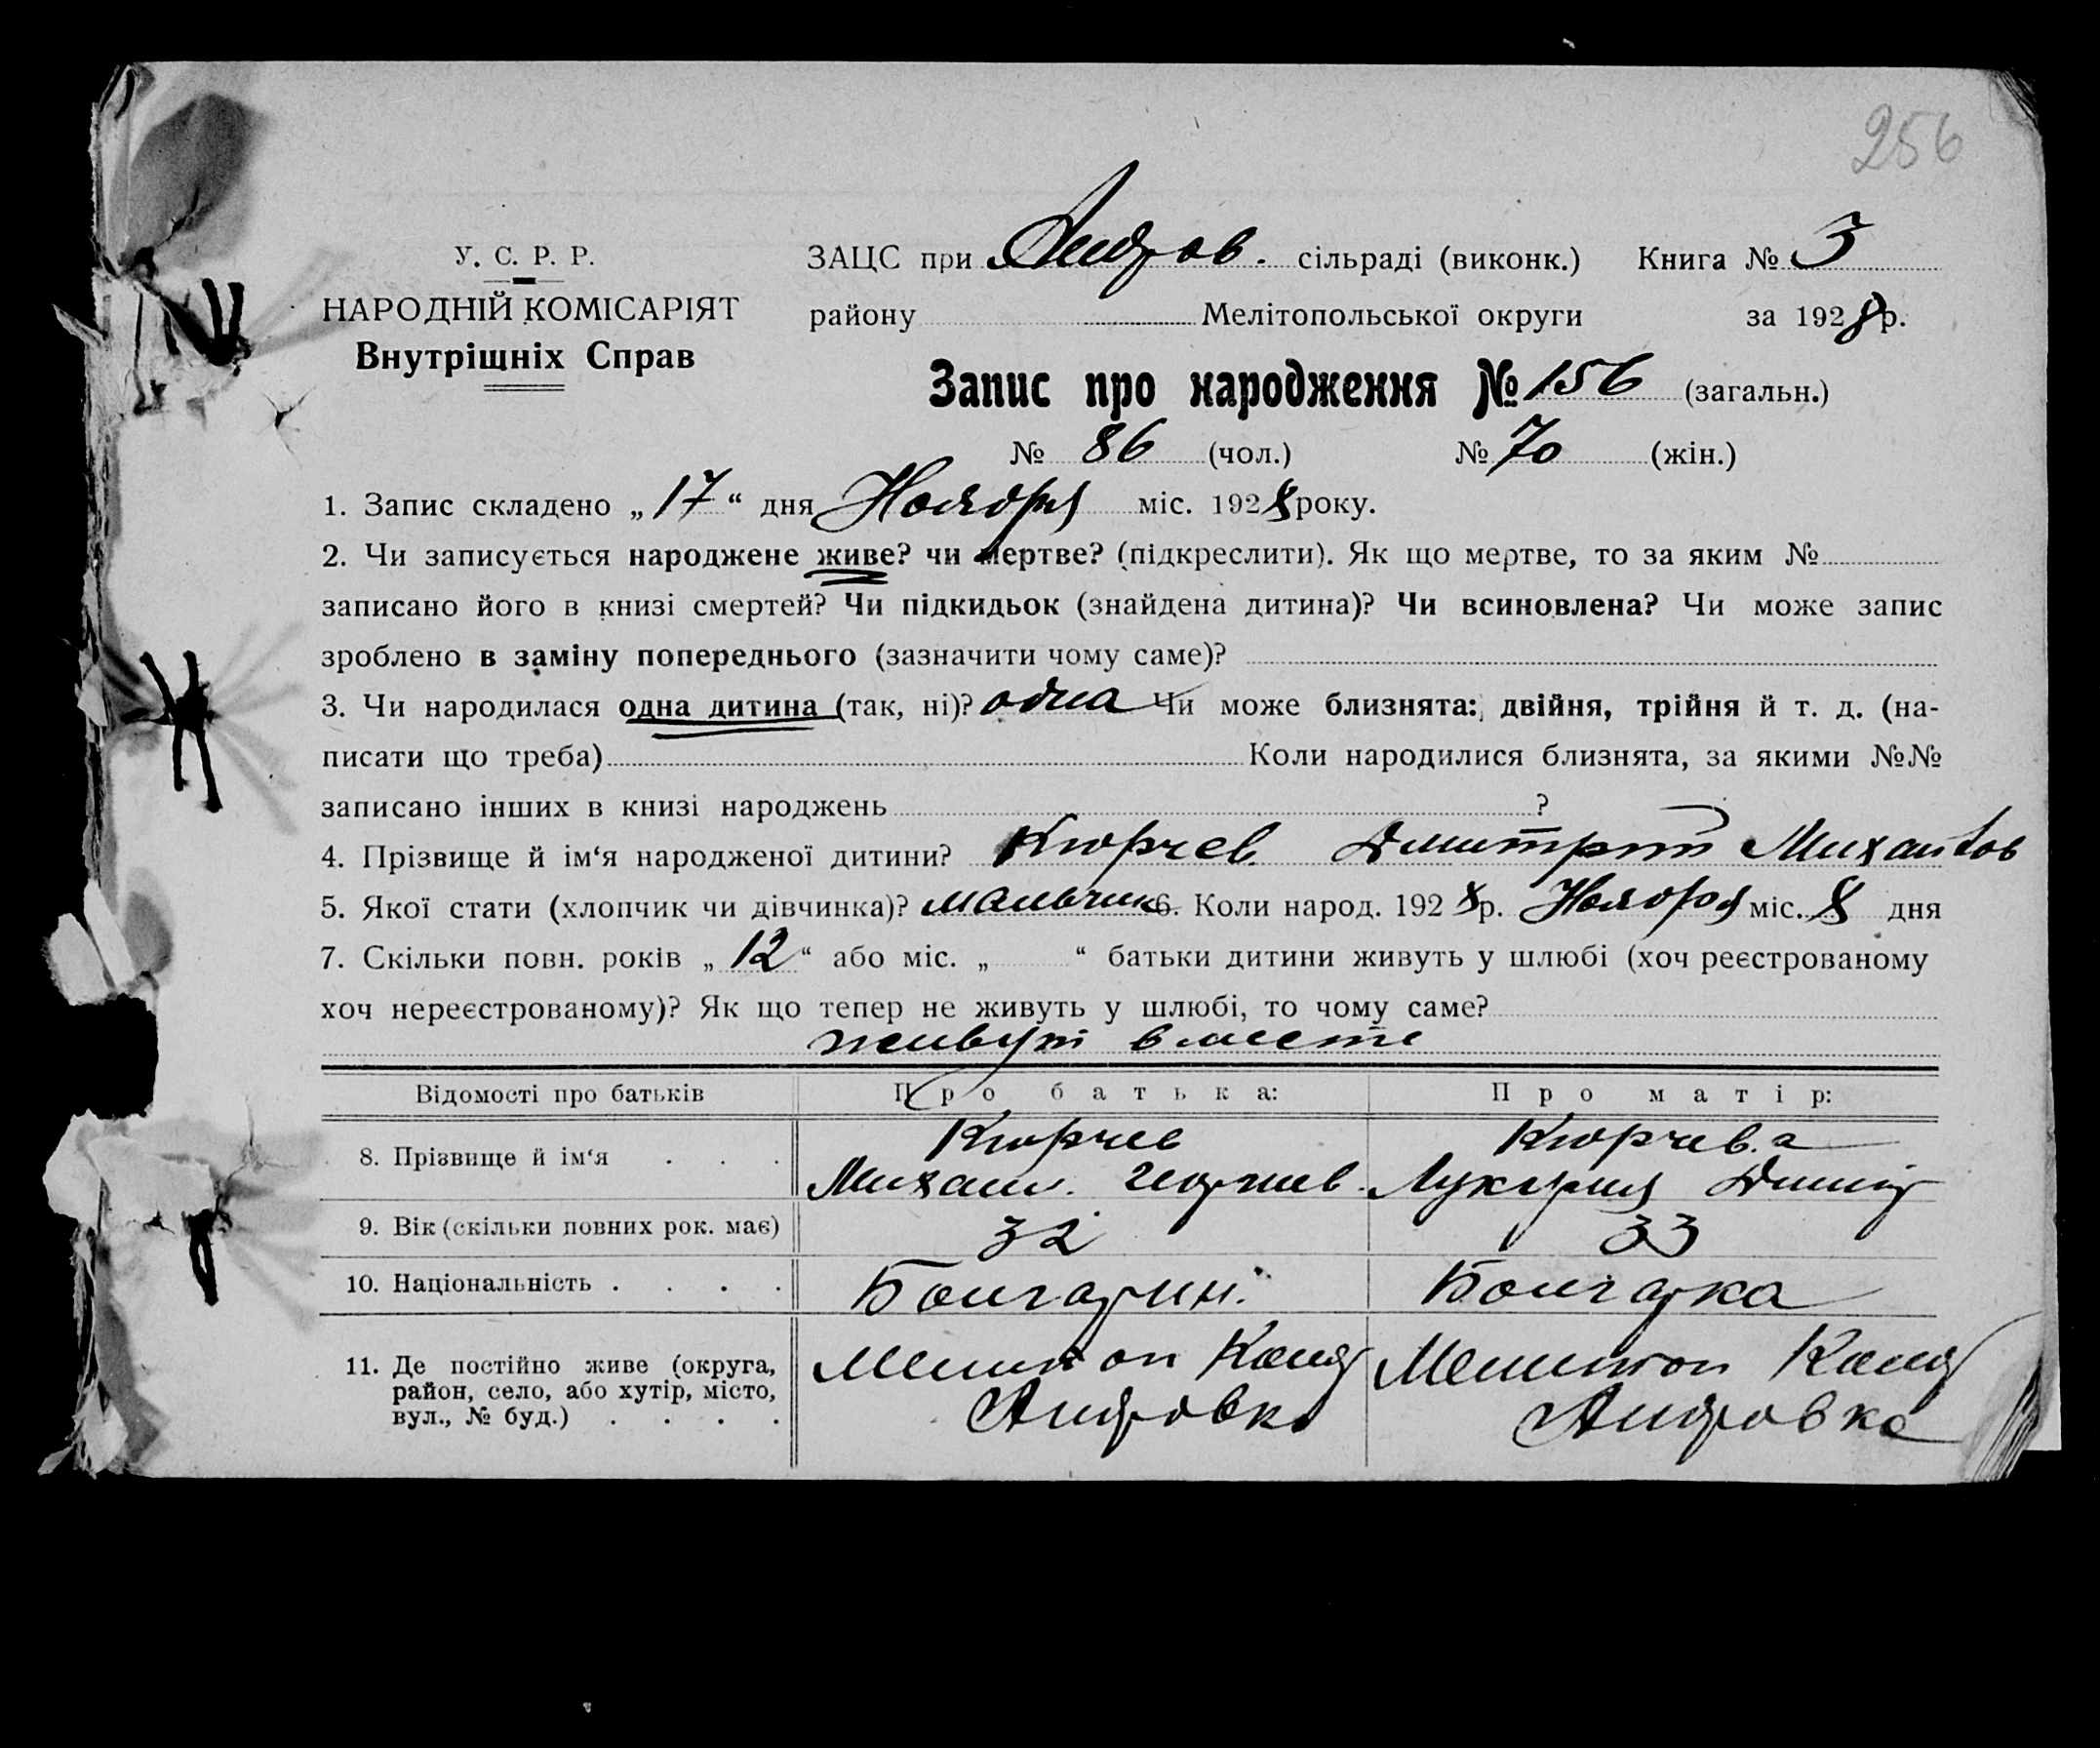 256
У. С. Р. Р.
НАРОДНІЙ КОМІСАРІЯТ
Внутрішніх Справ
ЗАЦС при Андров. сільраді (виконк.) Книга № 3
району Мелітопольської округи за 1928 р.
Запис про народження № 156 (загальн.)
№ 86 (чол.) № 70 (жін.)
1. Запис складено „17“ дня Ноября міс. 1928 року.
2. Чи записується народжене живе? чи мертве? (підкреслити). Як що мертве, то за яким №
записано його в книзі смертей? Чи підкидьок (знайдена дитина)? Чи всиновлена? Чи може запис
зроблено в заміну попереднього (зазначити чому саме)?
3. Чи народилася одна дитина (так, ні)? одна Чи може близнята: двійня, трійня й т. д. (на-
писати що треба) Коли народилися близнята, за якими №№
записано інших в книзі народжень ?
4. Прізвище й ім‘я народженої дитини? Кюрчев Дмитрий Михайлов
5. Якої стати (хлопчик чи дівчинка)? мальчик 6. Коли народ. 1928 р. Ноября міс. 8 дня
7. Скільки повн. років „12“ або міс. „ “ батьки дитини живуть у шлюбі (хоч реєстрованому
хоч нереєстрованому)? Як що тепер не живуть у шлюбі, то чому саме?
живут вместе
Відомості про батьків Про батька: Про матір:
8. Прізвище й ім‘я Кюрчев Кюрчева
Михаил. Георгиев. Лукерия Дмит
9. Вік (скільки повних рок. має) 32 33
10. Національність Болгарин. Болгарка
11. Де постійно живе (округа, район, село, або хутір, місто, вул., № буд.) Мелитоп Мелитоп
Андровка Андровка